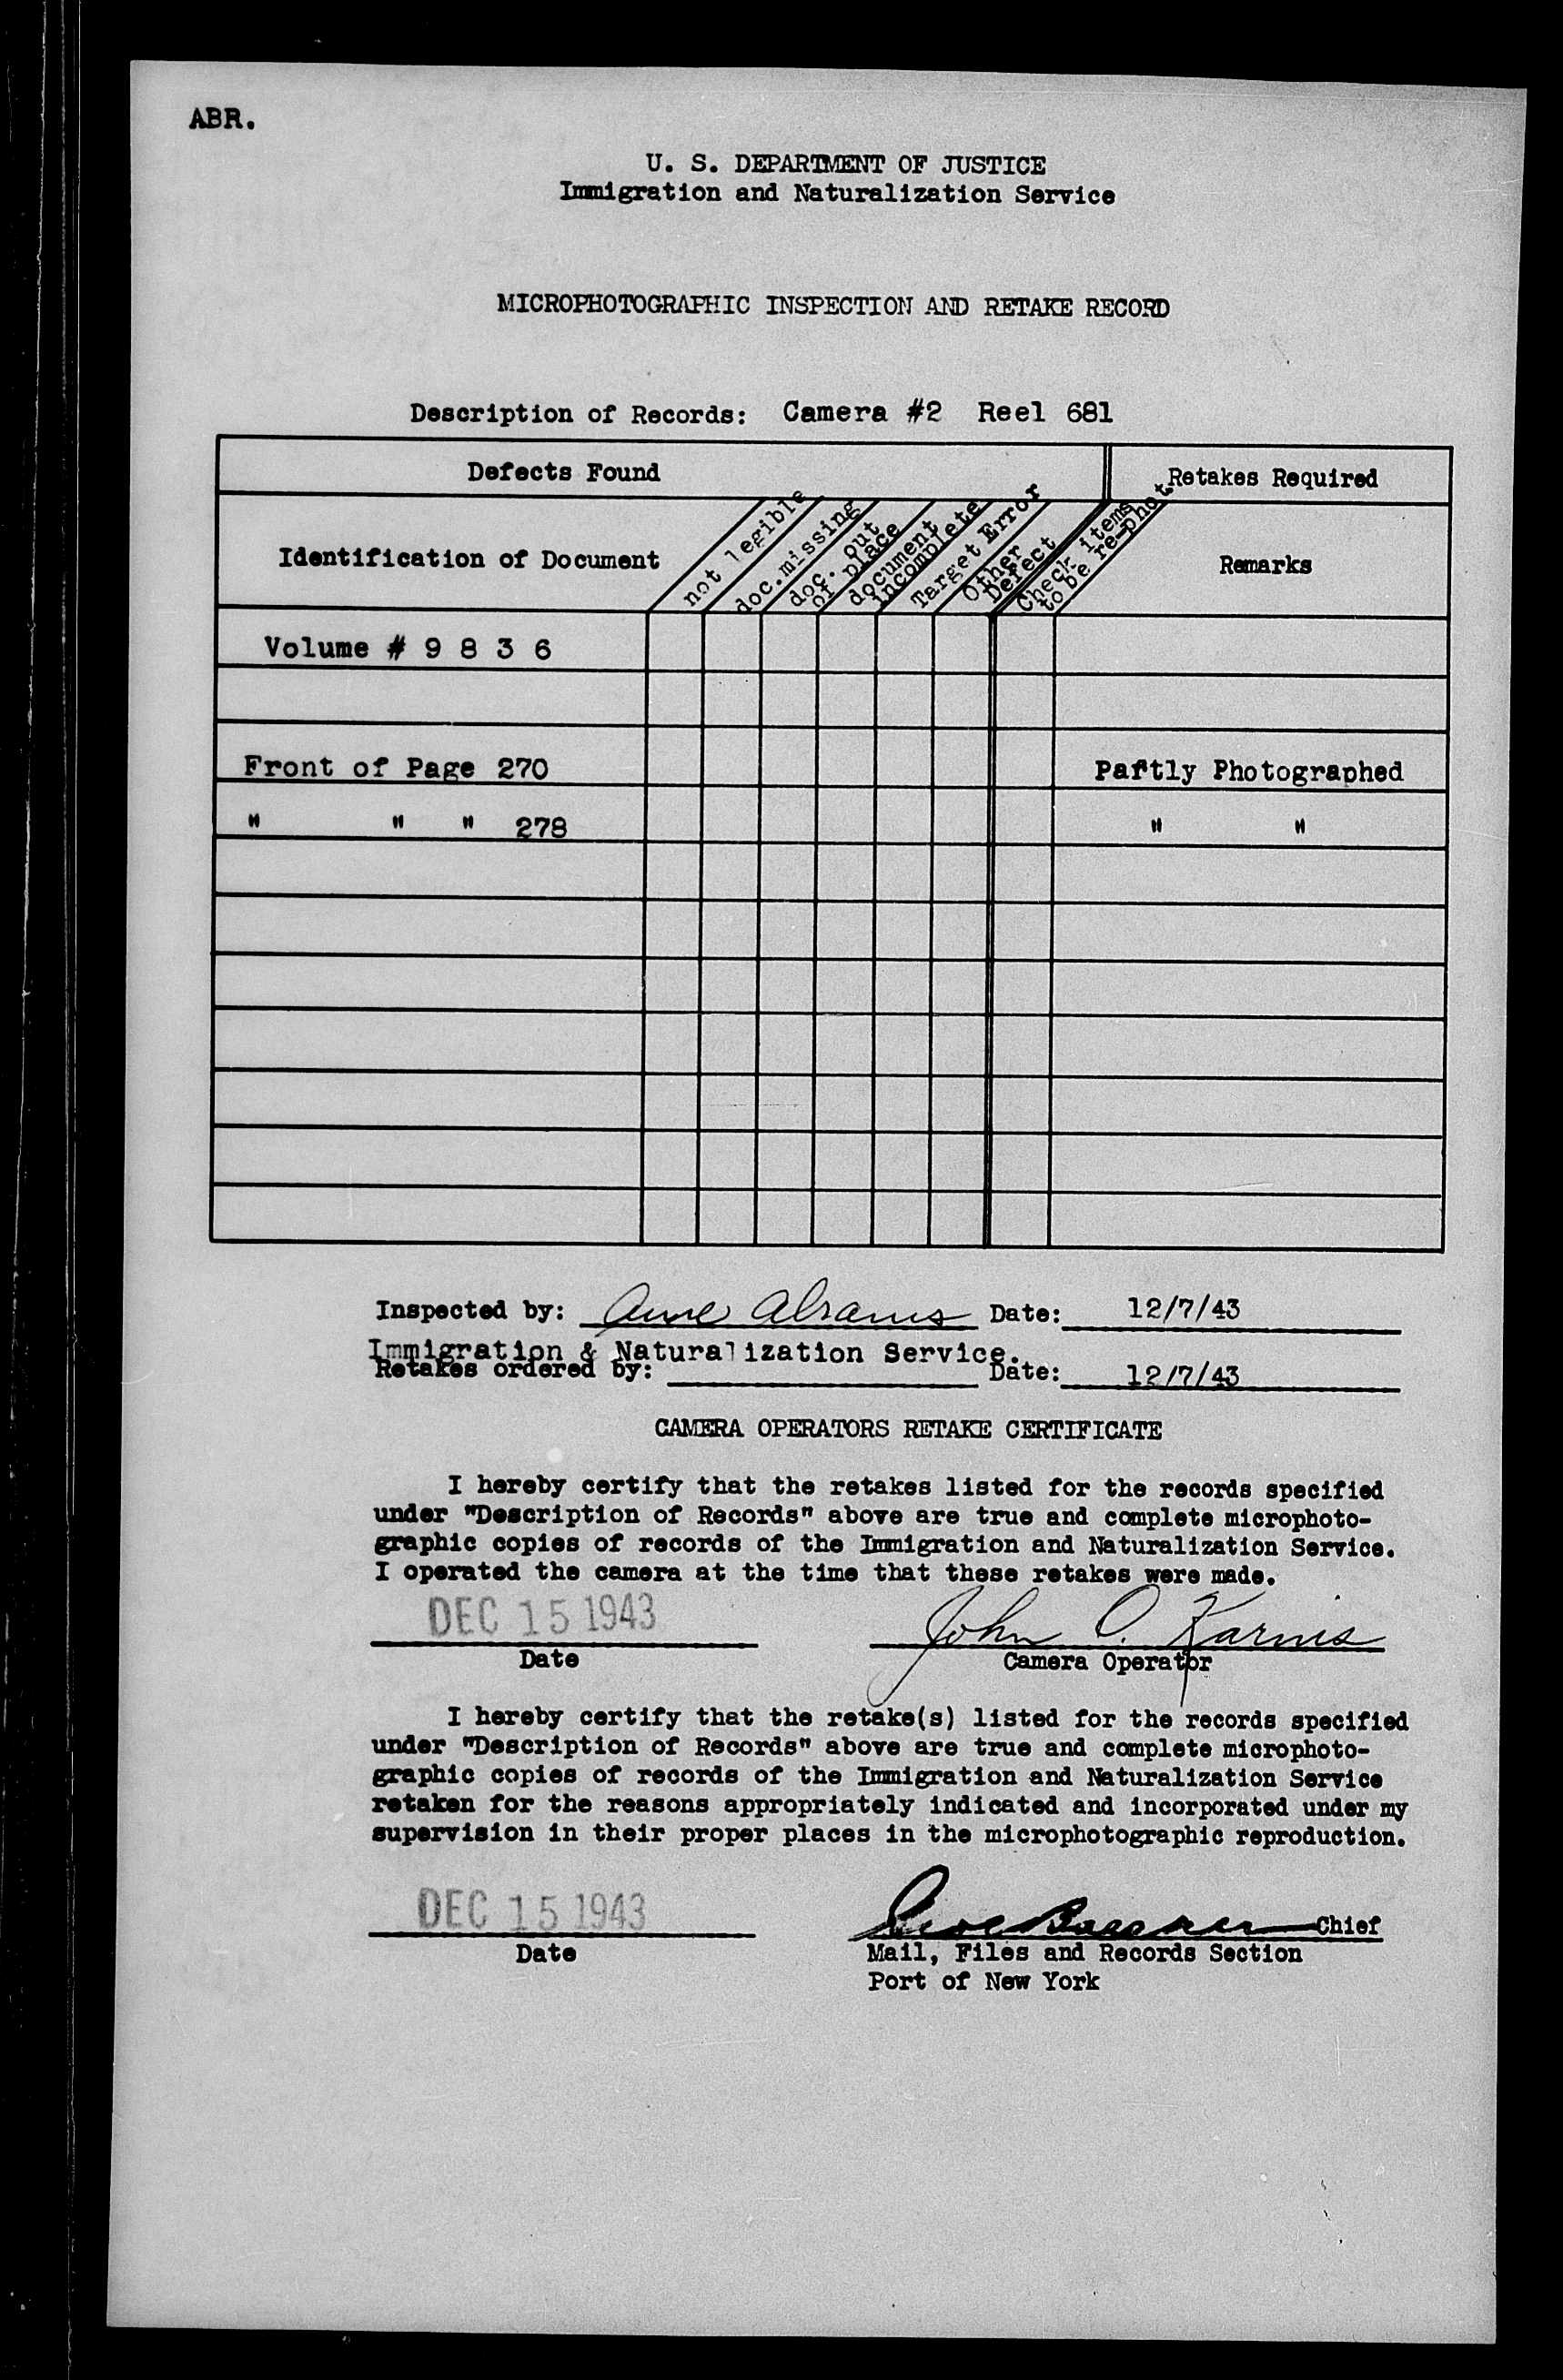 ABR.
U. S. DEPARTMENT OF JUSTICE
Immigration and Naturalization Service
MICROPHOTOGRAPHIC INSPECTION AND RETAKE RECORD
Description of Records: Camera #2 Reel 681
Defects Found
Retakes Required
Identification of Document
not legible
doc.missing
doc. out
of place
document
incomplete
Target Error
Other
Defect
Check items
to be re-phot
Remarks
Volume # 9 8 3 6
Front of Page 270 Partly Photographed
" " " 278 " "
Inspected by: Anne Abrams Date: 12/7/43
Immigration & Naturalization Service.
Retakes ordered by: Date: 12/7/43
CAMERA OPERATORS RETAKE CERTIFICATE
I hereby certify that the retakes listed for the records specified
under "Description of Records" above are true and complete microphoto-
graphic copies of records of the Immigration and Naturalization Service.
I operated the camera at the time that these retakes were made.
DEC 15 1943 John O. Karnis
Date Camera Operator
I hereby certify that the retake(s) listed for the records specified
under "Description of Records" above are true and complete microphoto-
graphic copies of records of the Immigration and Naturalization Service
retaken for the reasons appropriately indicated and incorporated under my
supervision in their proper places in the microphotographic reproduction.
DEC 15 1943 Chief
Date Mail, Files and Records Section
Port of New York